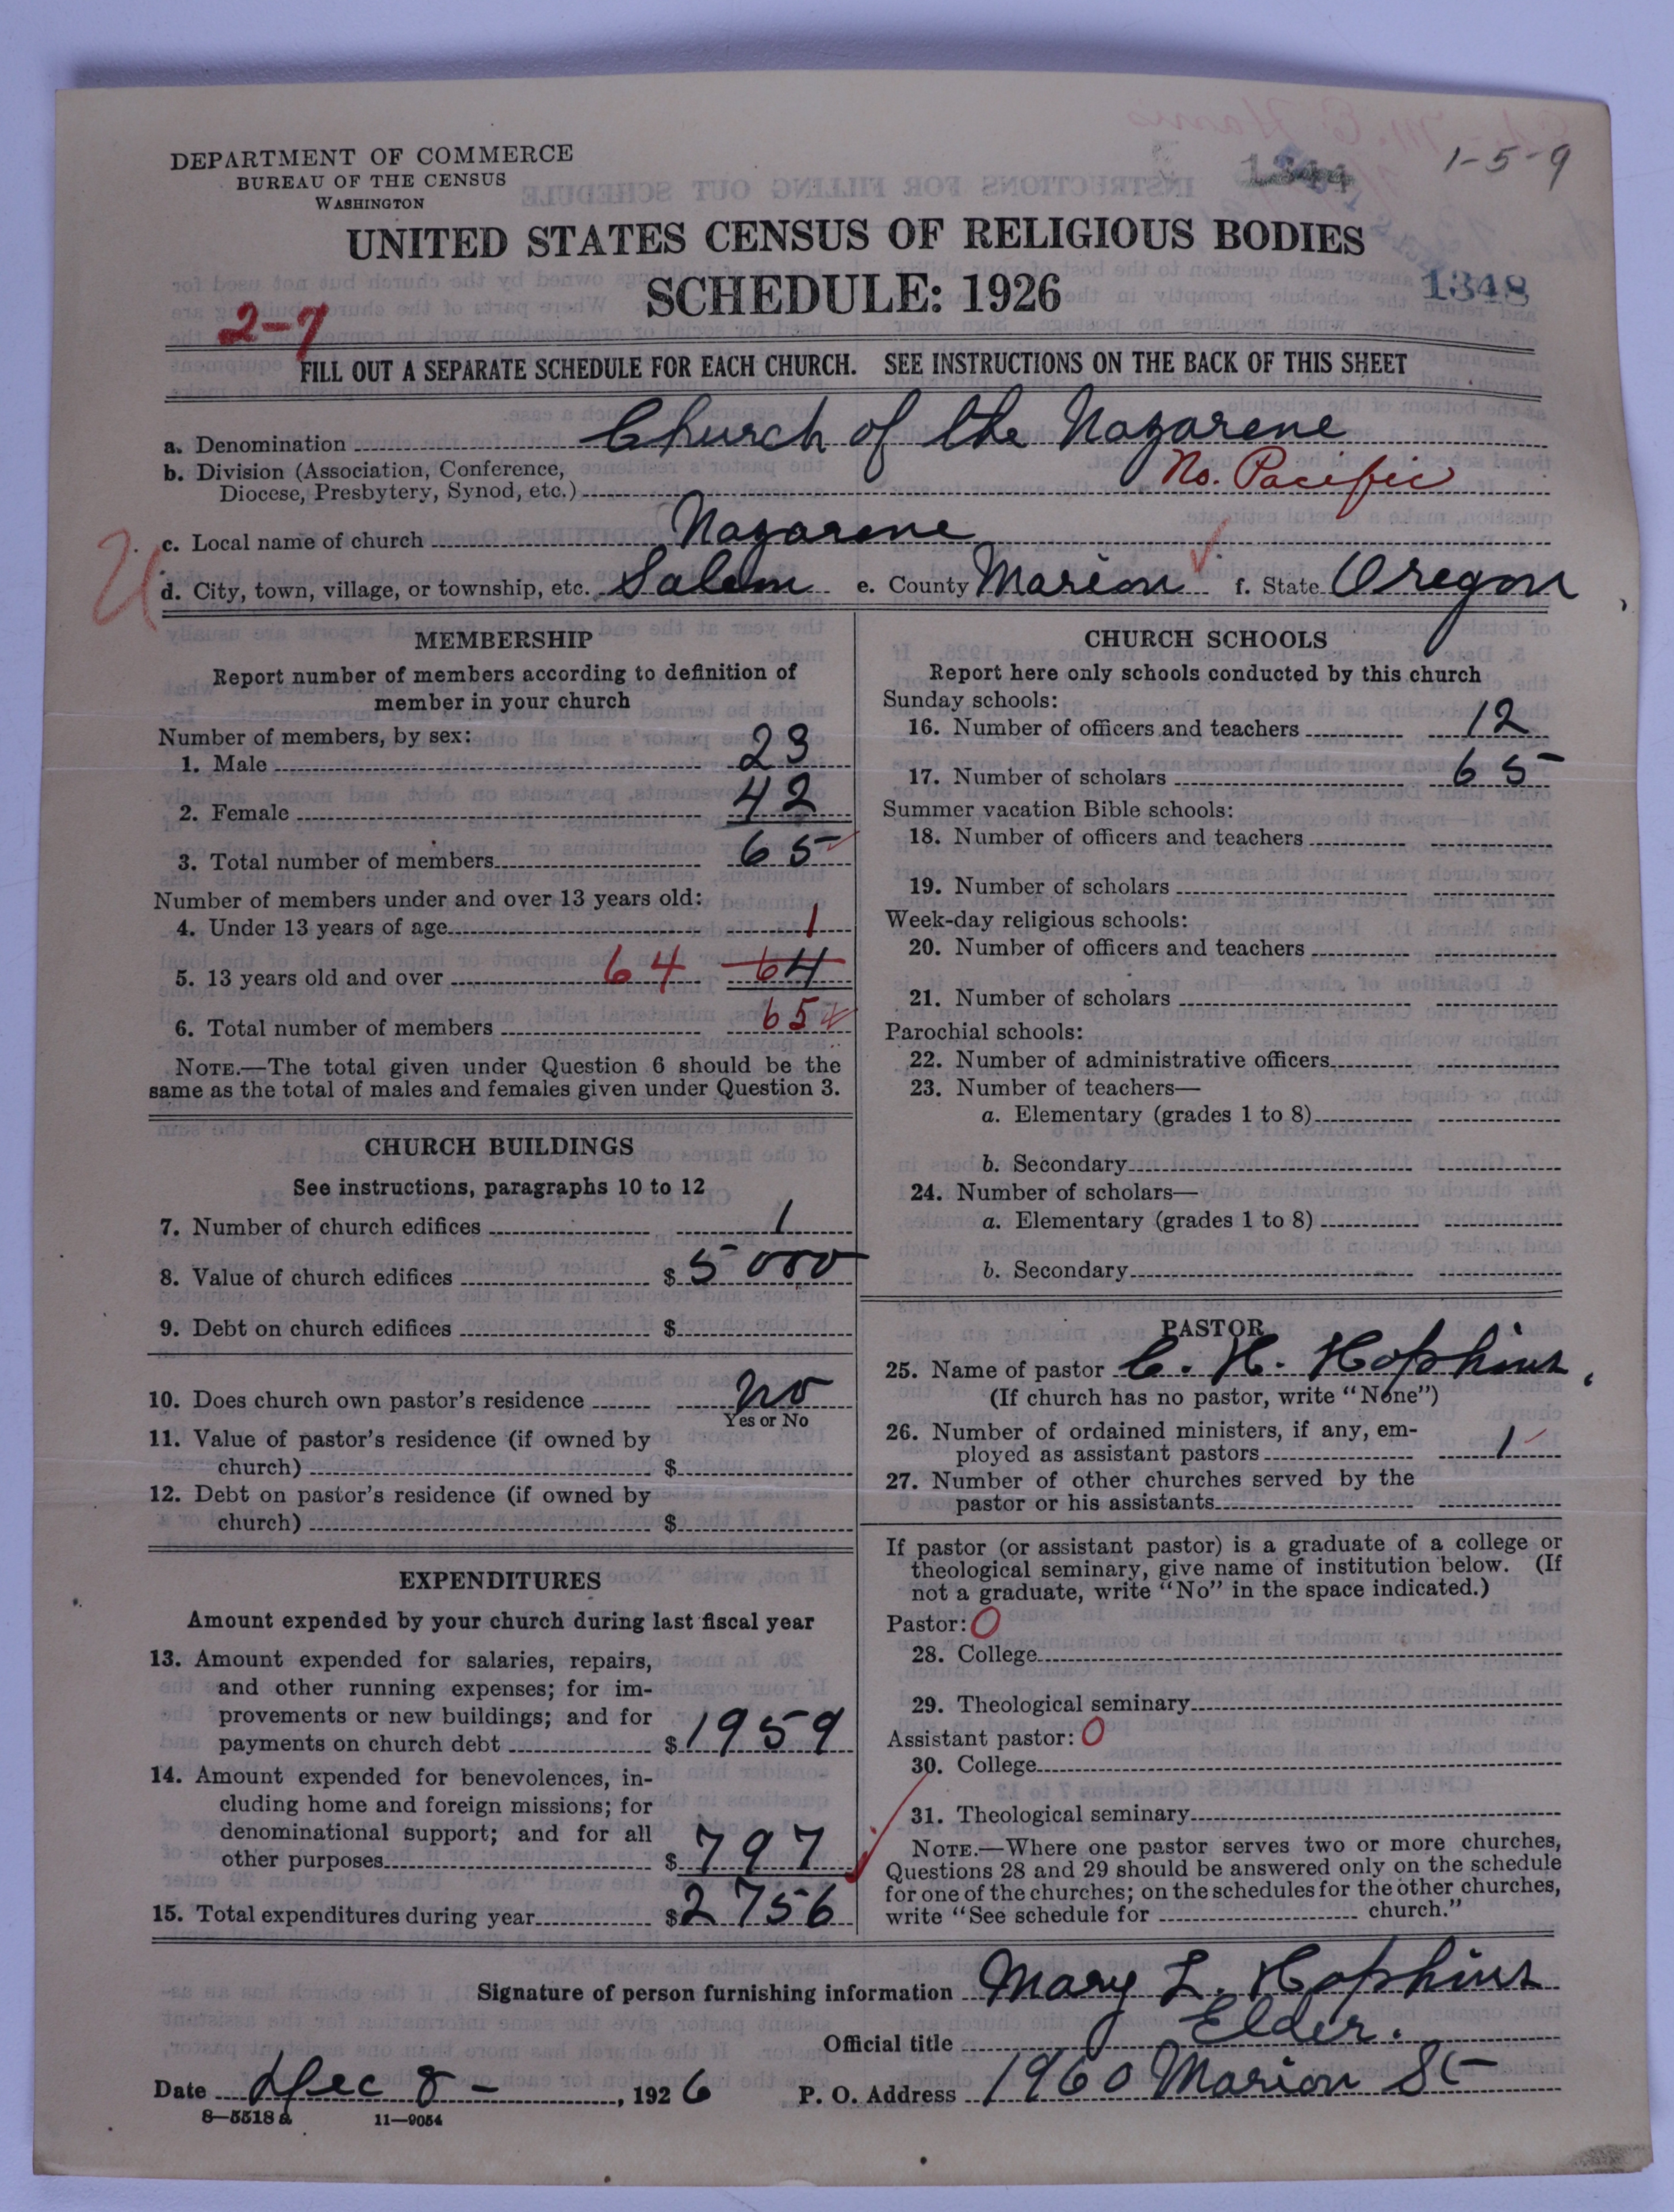 1-5-9
DEPARTMENT OF COMMERCE
BUREAU OF THE CENSUS
WASHINGTON
1344
UNITED STATES CENSUS OF RELIGIOUS BODIES
SCHEDULE: 1926
1348
2-7
FILL OUT A SEPARATE SCHEDULE FOR EACH CHURCH. SEE INSTRUCTIONS ON THE BACK OF THIS SHEET
a. Denomination Church of the Nazarene
b. Division (Association, Conference,
Diocese, Presbytery, Synod, etc.) No. Pacific
c. Local name of church Nazarene
d. City, town, village, or township, etc. Salem e. County Marion f. State Oregon
MEMBERSHIP
Report number of members according to definition of
member in your church
Number of members, by sex:
1. Male 23
2. Female 42
3. Total number of members 65
Number of members under and over 13 years old:
4. Under 13 years of age 1
5. 13 years old and over 64 64
6. Total number of members 65
NOTE.—The total given under Question 6 should be the
same as the total of males and females given under Question 3.
CHURCH BUILDINGS
See instructions, paragraphs 10 to 12
7. Number of church edifices 1
8. Value of church edifices $ 5000
9. Debt on church edifices $
10. Does church own pastor's residence no
Yes or No
11. Value of pastor's residence (if owned by
church) $
12. Debt on pastor's residence (if owned by
church) $
EXPENDITURES
Amount expended by your church during last fiscal year
13. Amount expended for salaries, repairs,
and other running expenses; for im-
provements or new buildings; and for
payments on church debt $ 1959
14. Amount expended for benevolences, in-
cluding home and foreign missions; for
denominational support; and for all
other purposes $ 797
15. Total expenditures during year $ 2756
CHURCH SCHOOLS
Report here only schools conducted by this church
Sunday schools:
16. Number of officers and teachers 12
17. Number of scholars 65
Summer vacation Bible schools:
18. Number of officers and teachers
19. Number of scholars
Week-day religious schools:
20. Number of officers and teachers
21. Number of scholars
Parochial schools:
22. Number of administrative officers
23. Number of teachers—
a. Elementary (grades 1 to 8)
b. Secondary
24. Number of scholars—
a. Elementary (grades 1 to 8)
b. Secondary
PASTOR
25. Name of pastor C. H. Hopkins,
(If church has no pastor, write "None")
26. Number of ordained ministers, if any, em-
ployed as assistant pastors 1
27. Number of other churches served by the
pastor or his assistants
If pastor (or assistant pastor) is a graduate of a college or
theological seminary, give name of institution below. (If
not a graduate, write "No" in the space indicated.)
Pastor: 0
28. College
29. Theological seminary
Assistant pastor: 0
30. College
31. Theological seminary
NOTE.—Where one pastor serves two or more churches,
Questions 28 and 29 should be answered only on the schedule
for one of the churches; on the schedules for the other churches,
write "See schedule for church."
Signature of person furnishing information Mary L. Hopkins
Official title Elder.
Date Dec 8 - , 1926 P. O. Address 1960 Marion St
8—5518a 11—9054